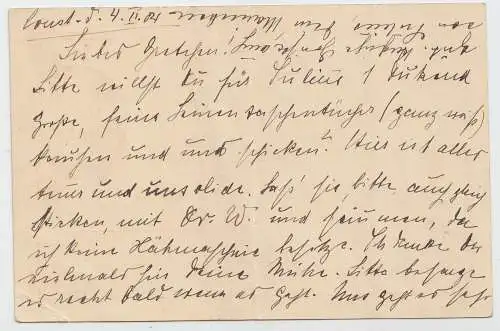 Const. d. 4. II. 01
Liebes Gretchen!
Bitte willst du für Julius 1 Dutzend
große, feine Leinentaschentücher (ganz weiß)
kaufen und uns schicken? Hier ist alles
teuer und unsolide. Laß sie, bitte, auch gleich
sticken, mit Dr. W. und säumen, da
ich keine Nähmaschine besitze. Ich danke dir
vielmals für deine Mühe. Bitte besorge
es recht bald wenn es geht. Uns geht es sehr